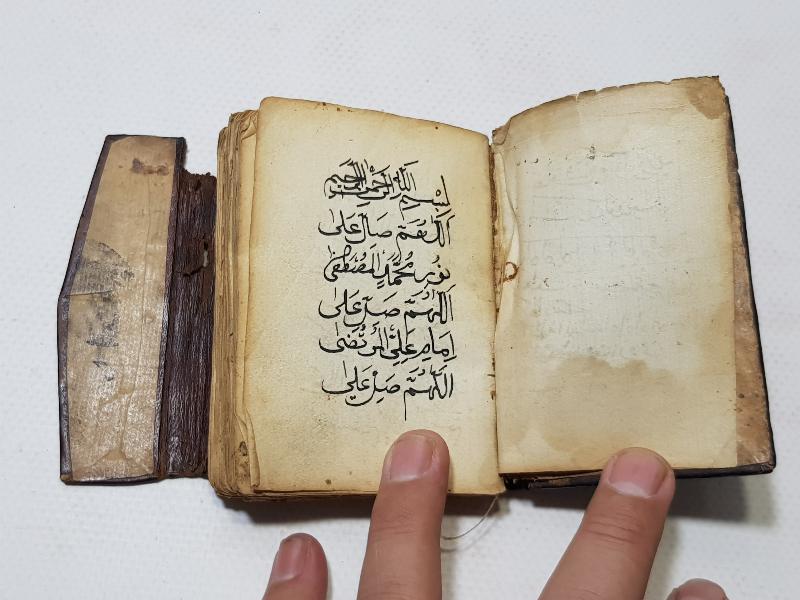 بِسْمِ اللهِ الرَّحْمٰنِ الرَّحِيمِ
اَللّٰهُمَّ صَلِّ عَلٰى
نُورِ مُحَمَّدٍ الْمُصْطَفٰى
اَللّٰهُمَّ صَلِّ عَلٰى
اِمَامِ عَلِيِّ الْمُرْتَضٰى
اَللّٰهُمَّ صَلِّ عَلٰى